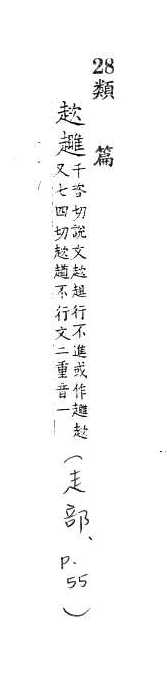 28 類篇
趑趡
千咨切說文趑趄行不進或作趡趑
又七四切趑趙不行文二重音一
(走部、p.55)